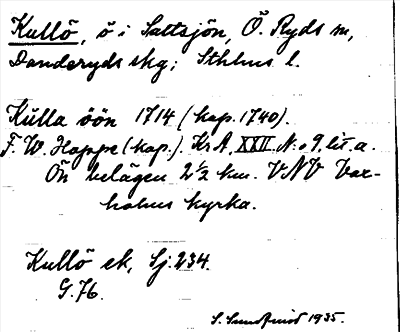 Kullö, ö i Saltsjön, Ö. Ryds sn,
Danderyds skg; Sthlms l.
Kulla öön 1714 (kop. 1740).
F. W. Hoppe (kop.). KrA. XXII N:o 9. lit. a.
Ön belägen 2 1/2 km. VNV Vax-
holms kyrka.
Kullö ek, Sj. 234.
G. 76.
S. Sundqvist 1935.